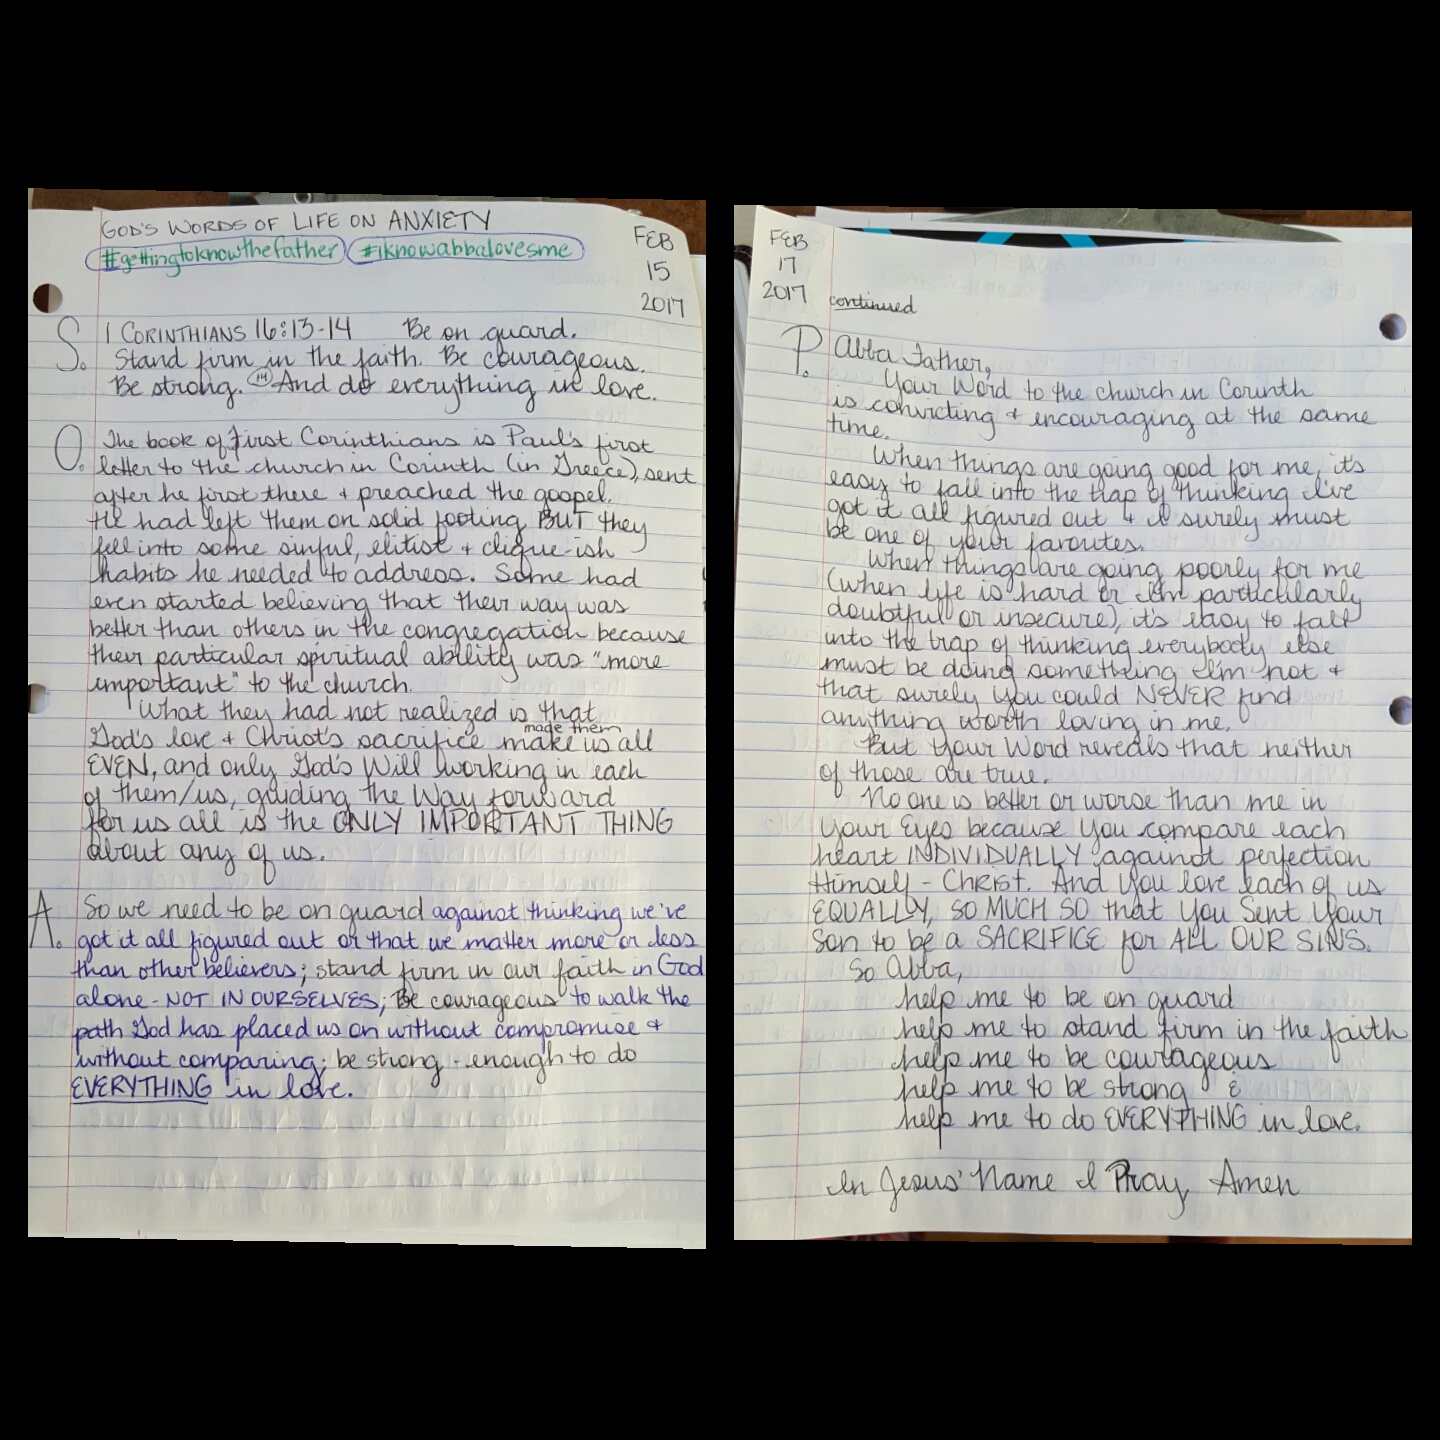 GOD'S WORDS OF LIFE ON ANXIETY
#gettingtoknowthefather #iknowabbalovesme
FEB
15
2017
S. 1 CORINTHIANS 16:13-14 Be on guard.
Stand firm in the faith. Be courageous.
Be strong. (14) And do everything in love.
O. The book of First Corinthians is Paul's first
letter to the church in Corinth (in Greece), sent
after he first there + preached the gospel.
He had left them on solid footing BUT they
fell into some sinful, elitist + clique-ish
habits he needed to address. Some had
even started believing that their way was
better than others in the congregation because
their particular spiritual ability was "more
important" to the church.
What they had not realized is that
made them
God's love + Christ's sacrifice make us all
EVEN, and only God's Will working in each
of them/us, guiding the Way forward
for us all is the ONLY IMPORTANT THING
about any of us.
A. So we need to be on guard against thinking we've
got it all figured out or that we matter more or less
than other believers; stand firm in our faith in God
alone - NOT IN OURSELVES; Be courageous to walk the
path God has placed us on without compromise +
without comparing; be strong - enough to do
EVERYTHING in love.
FEB
17
2017
continued
P. Abba Father,
Your Word to the church in Corinth
is convicting + encouraging at the same
time.
When things are going good for me, it's
easy to fall into the trap of thinking I've
got it all figured out + I surely must
be one of your favorites.
When things are going poorly for me
(when life is hard or I'm particularly
doubtful or insecure), it's easy to fall
into the trap of thinking everybody else
must be doing something I'm not +
that surely you could NEVER find
anything worth loving in me.
But Your Word reveals that neither
of those are true.
No one is better or worse than me in
Your Eyes because You compare each
heart INDIVIDUALLY against perfection
Himself - CHRIST. And You love each of us
EQUALLY, SO MUCH SO that You Sent Your
Son to be a SACRIFICE for ALL OUR SINS.
So Abba,
help me to be on guard
help me to stand firm in the faith
help me to be courageous
help me to be strong &
help me to do EVERYTHING in love.
In Jesus' Name I Pray, Amen